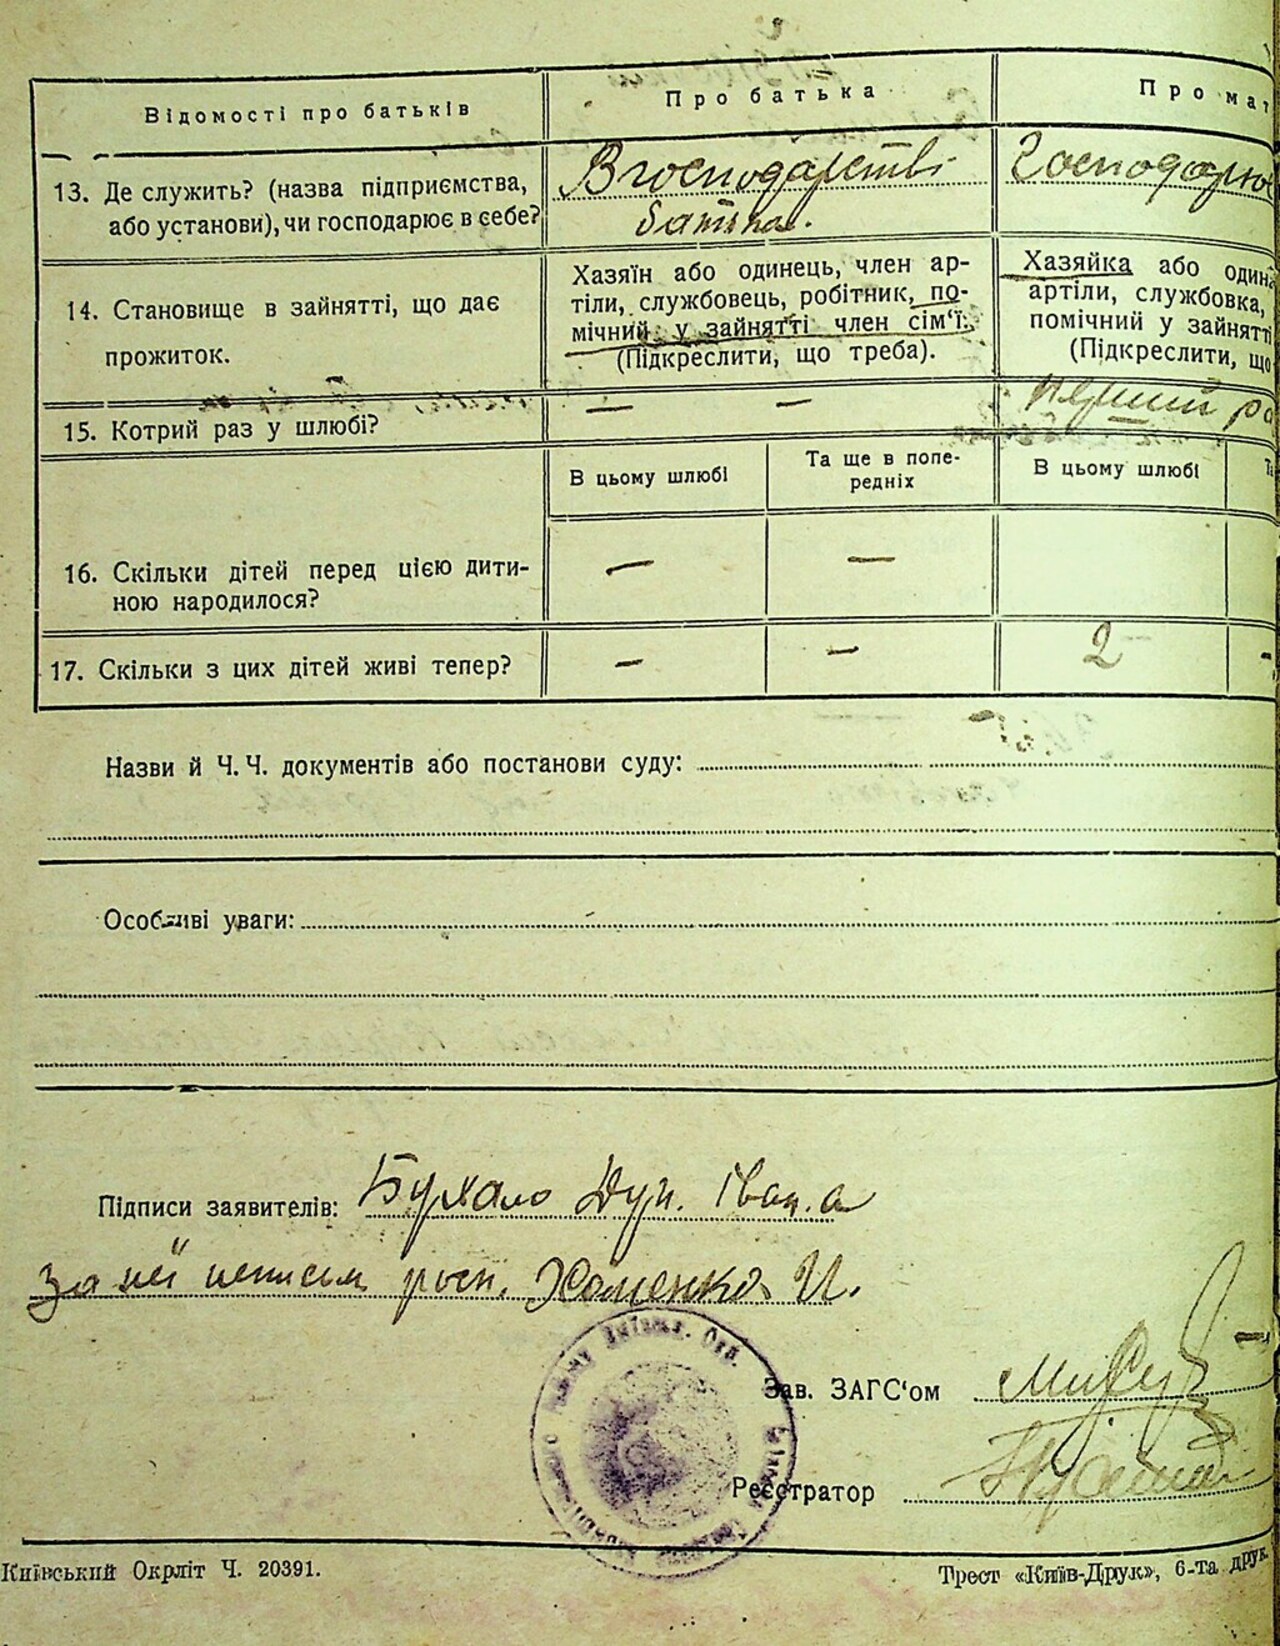 Відомості про батьків
Про батька
Про мат
13. Де служить? (назва підприємства,
або установи), чи господарює в себе?
В господарстві
батька.
Господарює
14. Становище в зайнятті, що дає
прожиток.
Хазяїн або одинець, член ар-
тіли, службовець, робітник, по-
мічний у зайнятті член сім'ї.
(Підкреслити, що треба).
Хазяйка або один
артіли, службовка,
помічний у зайнятті
(Підкреслити, що
15. Котрий раз у шлюбі?
— —
перший ра
В цьому шлюбі
Та ще в попе-
редніх
В цьому шлюбі
Та
16. Скільки дітей перед цією дити-
ною народилося?
— —
17. Скільки з цих дітей живі тепер?
— — 2 -
Назви й Ч. Ч. документів або постанови суду:
Особливі уваги:
Підписи заявителів: Бухало Дун. Іван.а
За неї неписьм. росп. Хоменко И.
Зав. ЗАГС'ом
Реєстратор
Київський Окрліт Ч. 20391.
Трест «Київ-Друк», 6-та друк.